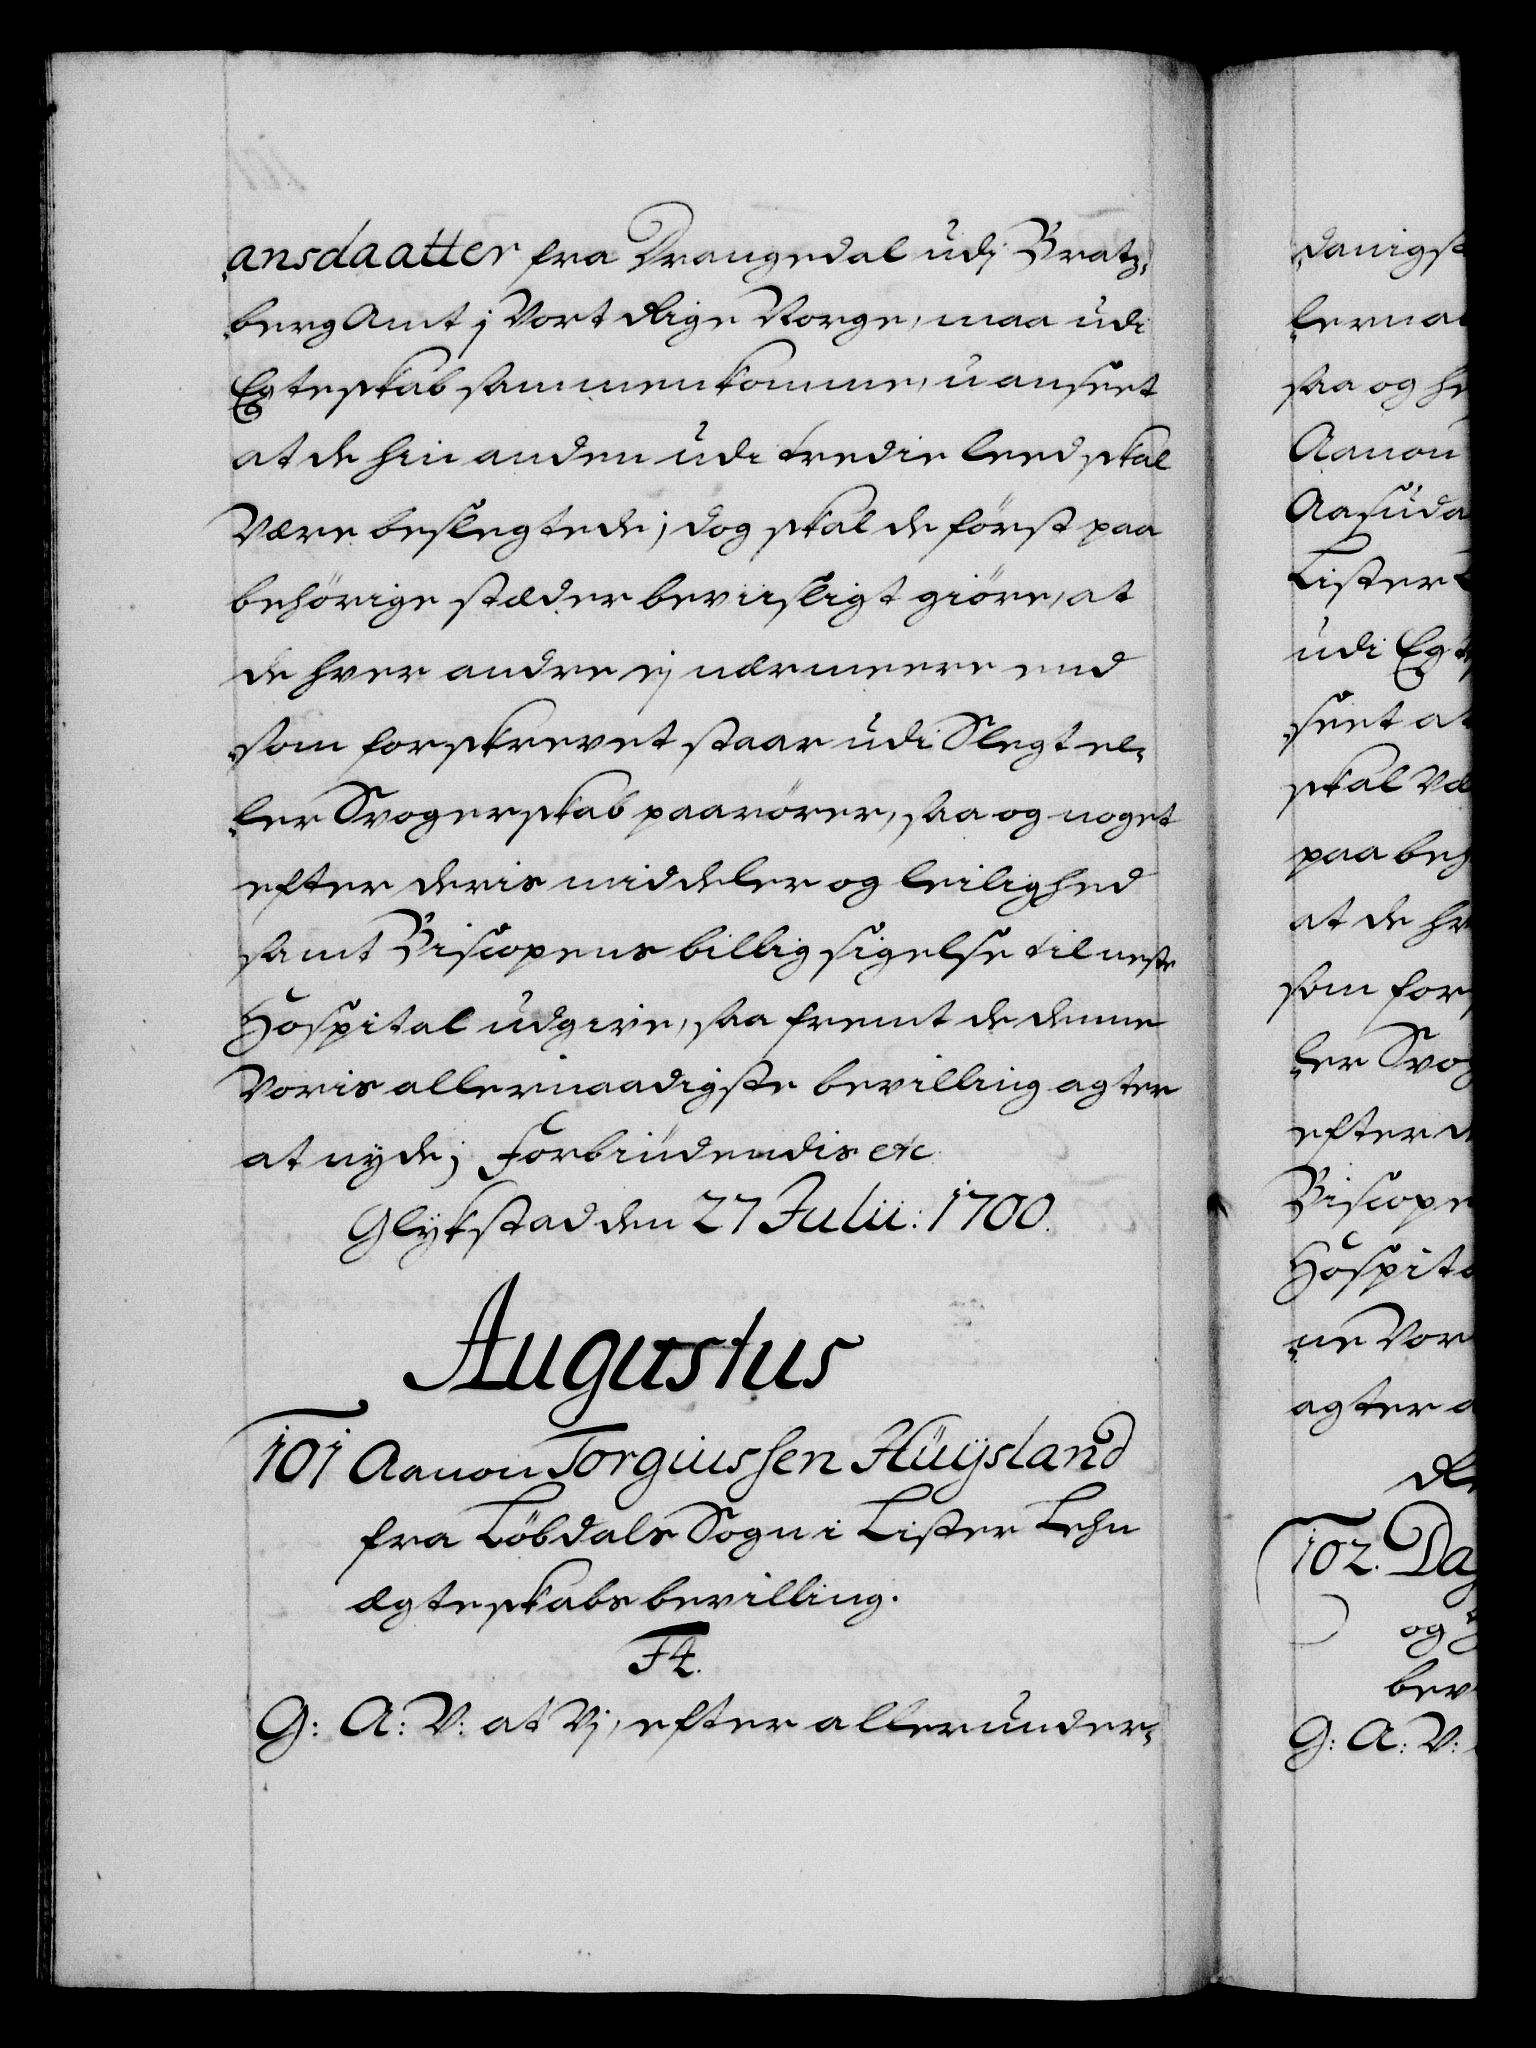 ansdaatter fra Drangedal udj Bratz-
berg Amt j Vort Rige Norge, maa udi
Egteskab sammenkomme, uanseet
at de hin anden udi tredie leed skal
være beslegtede; dog skal de först paa
behörige stæder beviisligt giöre, at
de hver andre ej nærmeere end
som forskrevet staar udi Slegt el-
ler Svogerskab paarörer, saa og noget
efter deris middeler og leilighed
samt Biscopens billig sigelse til neste
Hospital udgive, saa fremt de denne
Voris allernaadigste bevilling agter
at nyde; Forbiudendis etc
Glykstad den 27 Julii: 1700.
Augustus
101 Aanon Torgiussen Hüÿsland
fra Löbdals Sogn i Lister Lehn
ægteskabs bevilling.
F4.
G: A: V: at Vj, efter allerunder-
danigst
lernaa
saa og he
Aanon
Aasuda
Lister L
udi Egte
seet at
skal Væ
paa beh
at de hv
som for
ler Svog
efter d
Biscope
Hospita
ne Vor
agter a
102. Dag
og
bev
G: A: V: